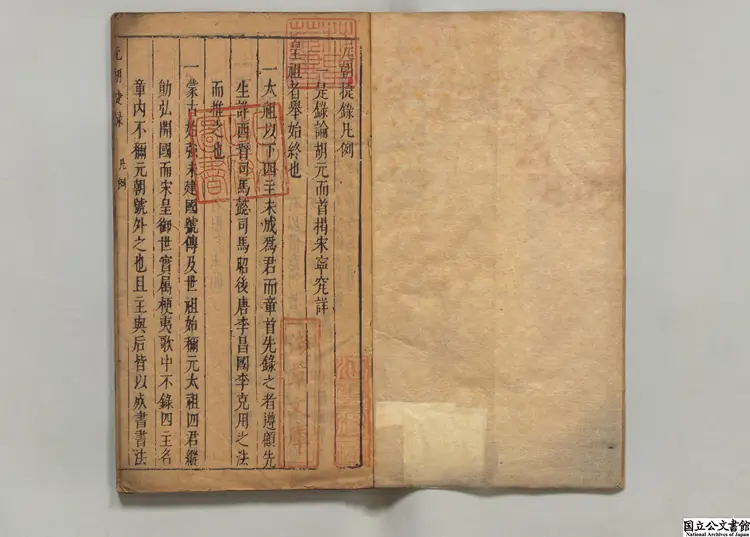 元朝捷錄凡例
一是錄論胡元而首揭宋寧究詳
皇祖者舉始終也
一太祖以下四主未成爲君而章首先錄之者遵顧先
生評西晉司馬懿司馬昭後唐李昌國李克用之法
而推之也
一蒙古始強未建國號傳及世祖始稱元太祖四君纔
勛弘開國而宋皇御世實屬梗夷歌中不錄四主名
章內不稱元朝號外之也且主與后皆以成書書法
元朝捷錄 凡例
淺草文庫
国立公文書館
National Archives of Japan